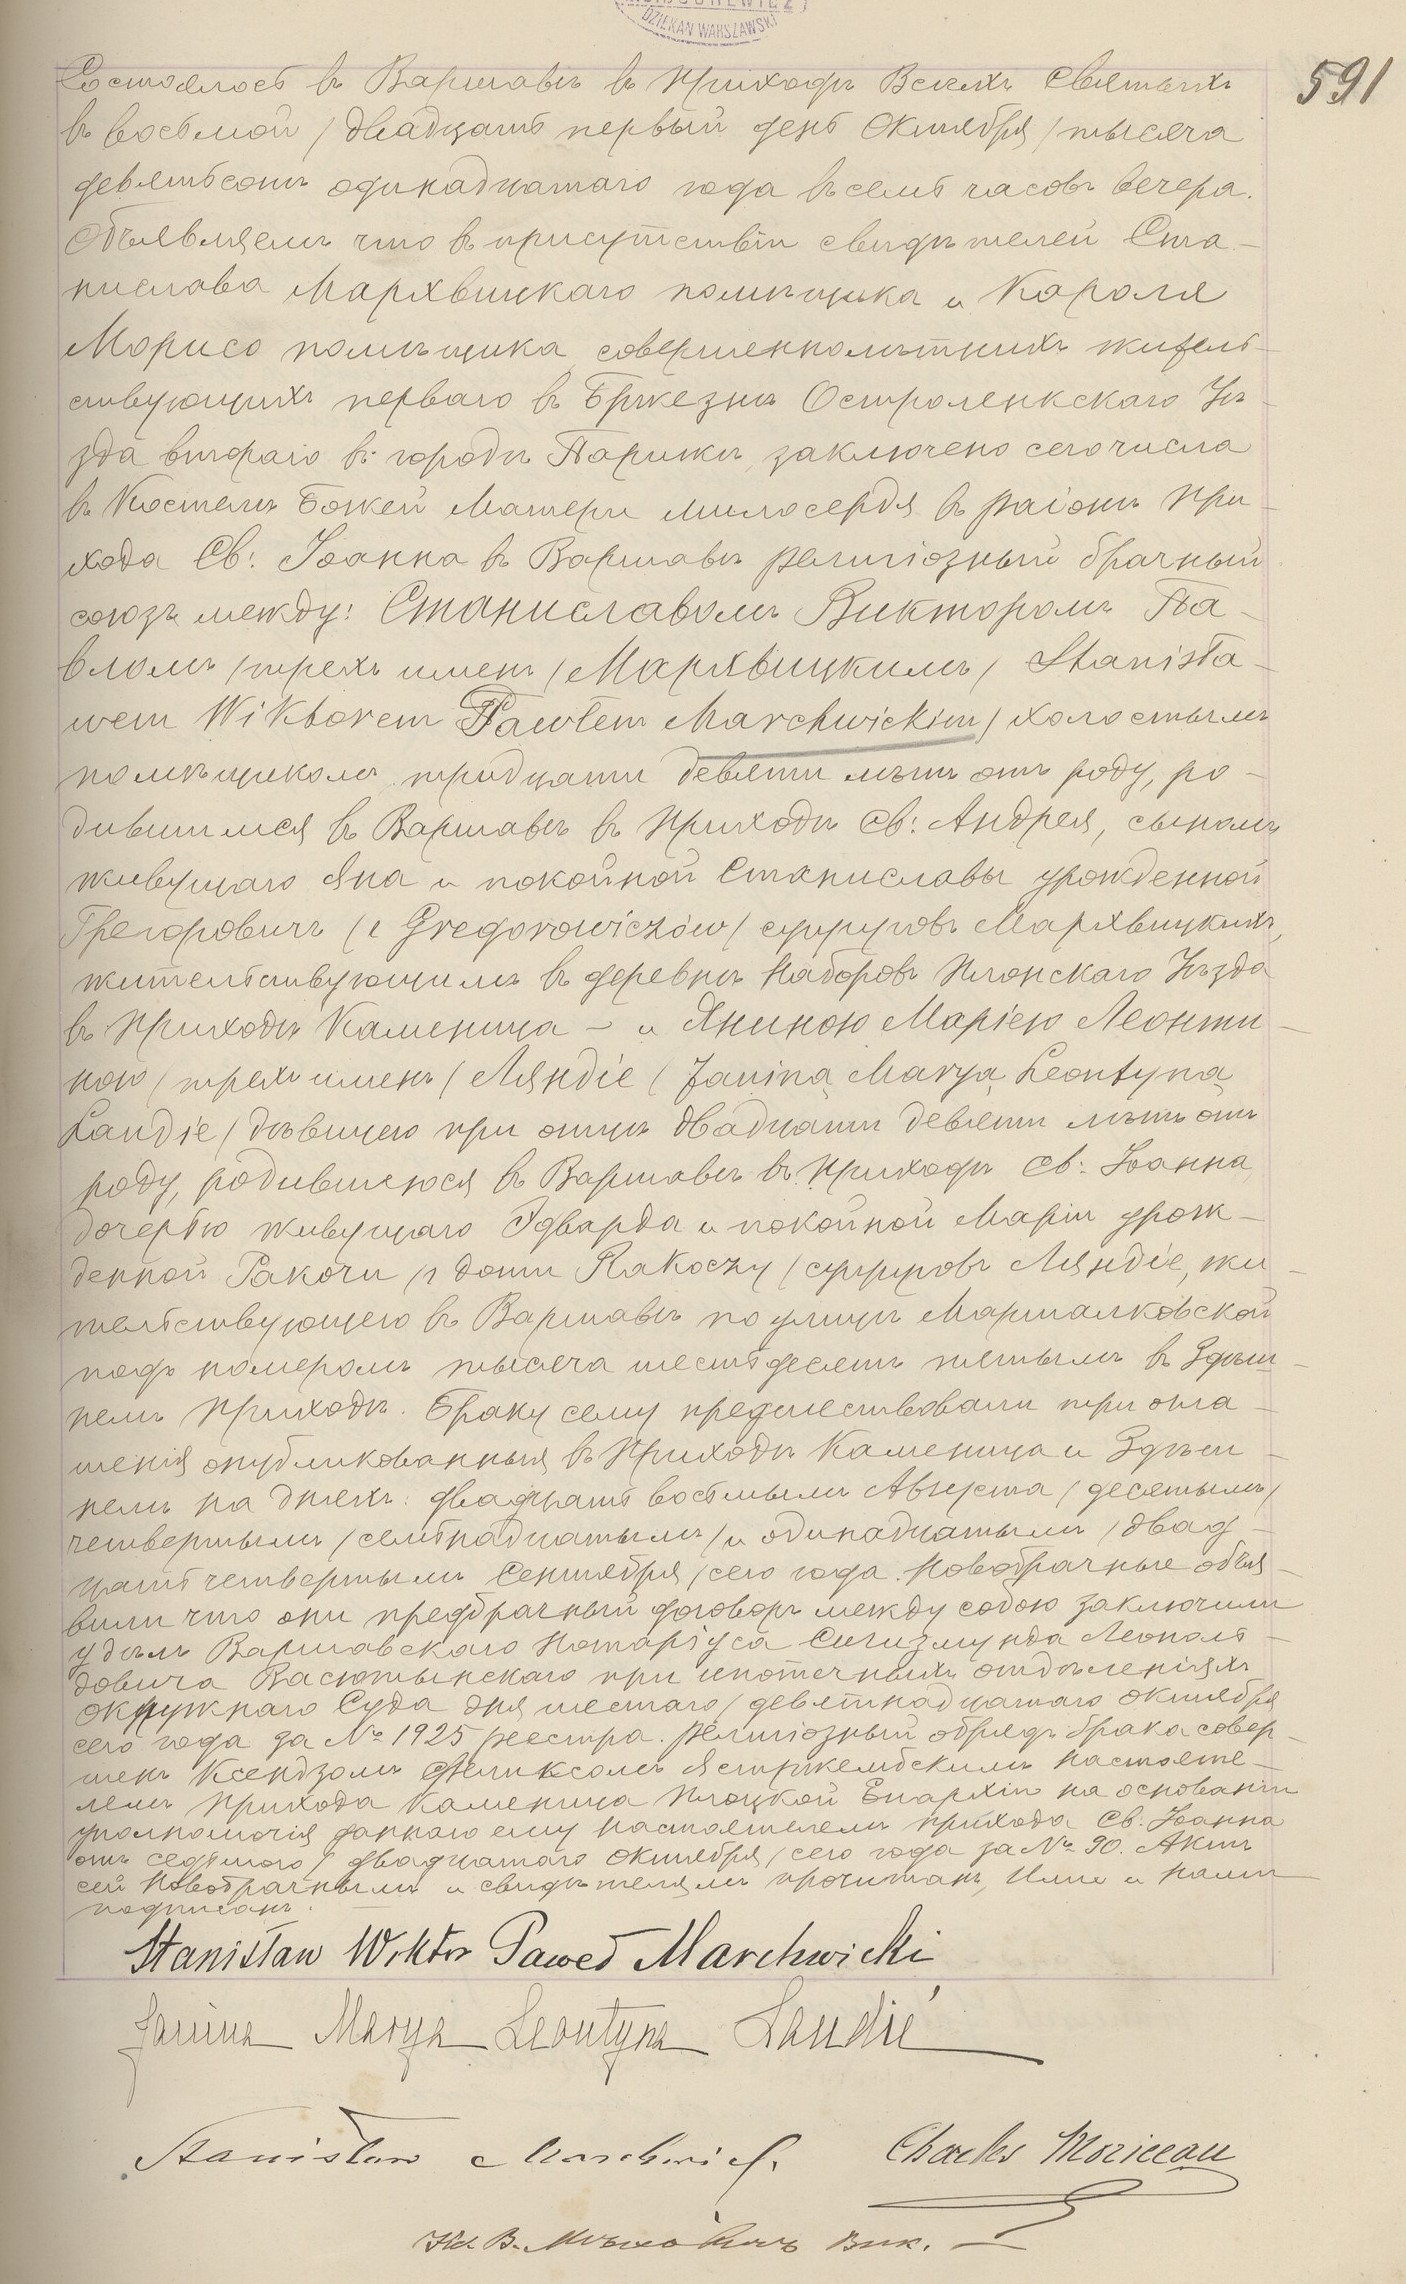 DZIEKAN WARSZAWSKI
591
Состоялось въ Варшавѣ въ Приходѣ Всѣхъ Святыхъ
въ восьмой / двадцать первый день Октября / тысяча
девятьсотъ одинадцатаго года въ семь часовъ вечера.
Объявляемъ что въ присутствіи свидѣтелей Ста-
нислава Мархвицкаго помѣщика и Кароля
Морисо помѣщика совершеннолѣтнихъ житель-
ствующихъ перваго въ Бржезна Остроленкскаго Уѣ-
зда втораго въ городѣ Парижѣ, заключено сего числа
въ Костелѣ Божей Матери милосердя въ раіонѣ При-
хода Св: Іоанна въ Варшавѣ религіозный брачный
союзъ между: Станиславомъ Викторомъ Па-
вломъ / трехъ именъ / Мархвицкимъ / Stanisła-
wem Wiktorem Pawłem Marchwickim / холостымъ
помѣщикомъ, тридцати девяти лѣтъ отъ роду, ро-
дившимся въ Варшавѣ въ Приходѣ Св: Андрея, сыномъ
живущаго Яна и покойной Станиславы урожденной
Грегоровичъ / z Gregorowiczów / супруговъ Мархвицкихъ,
жительствующимъ въ деревнѣ Наборовъ Плонскаго Уѣзда
въ Приходѣ Каменица - и Яниною Маріею Леонти-
ною / трехъ именъ / Ляндіе / Janiną Maryą Leontyną
Landie / дѣвицею при отцѣ двадцати девяти лѣтъ отъ
роду, родившеюся въ Варшавѣ въ Приходѣ Св: Іоанна,
дочерью живущаго Эдварда и покойной Маріи урож-
денной Ракочи / z domu Rakoczy / супруговъ Ляндіе, жи-
тельствующею въ Варшавѣ по улицѣ Маршалковской
подъ номеромъ тысяча шестьдесятъ пятымъ въ Здѣш-
немъ Приходѣ. Браку сему предшествовали три огла-
шенія опубликованныя въ Приходѣ Каменица и Здѣш-
немъ на дняхъ: двадцать восьмымъ Августа / десятымъ /
четвертымъ / семьнадцатымъ / и одинадцатымъ / двад-
цать четвертымъ Сентября / сего года. Новобрачные объя-
вили что они предбрачный договоръ между собою заключили
у дѣлъ Варшавскаго Нотаріуса Сигизмунда Леополь-
довича Васютынскаго при ипотечныхъ отдѣленіяхъ
Окружнаго Суда дня шестаго / девятнадцатаго Октября
сего года за № 1925 реестра. Религіозный обрядъ брака совер-
шенъ Ксендзомъ Феликсомъ Ястржембскимъ Настояте-
лемъ Прихода Каменица Плоцкой Епархіи на основаніи
уполномочія даннаго ему Настоятелемъ прихода Св: Іоанна
отъ седьмого / двадцатаго Октября / сего года за № 90. Актъ
сей Новобрачнымъ и свидѣтелямъ прочитанъ, Ими и Нами
подписанъ.
Stanisław Wiktor Paweł Marchwicki
Janina Marya Leontyna Landié
Stanisław Marchwicki Charles Moriceau
Кс. В. Вик.